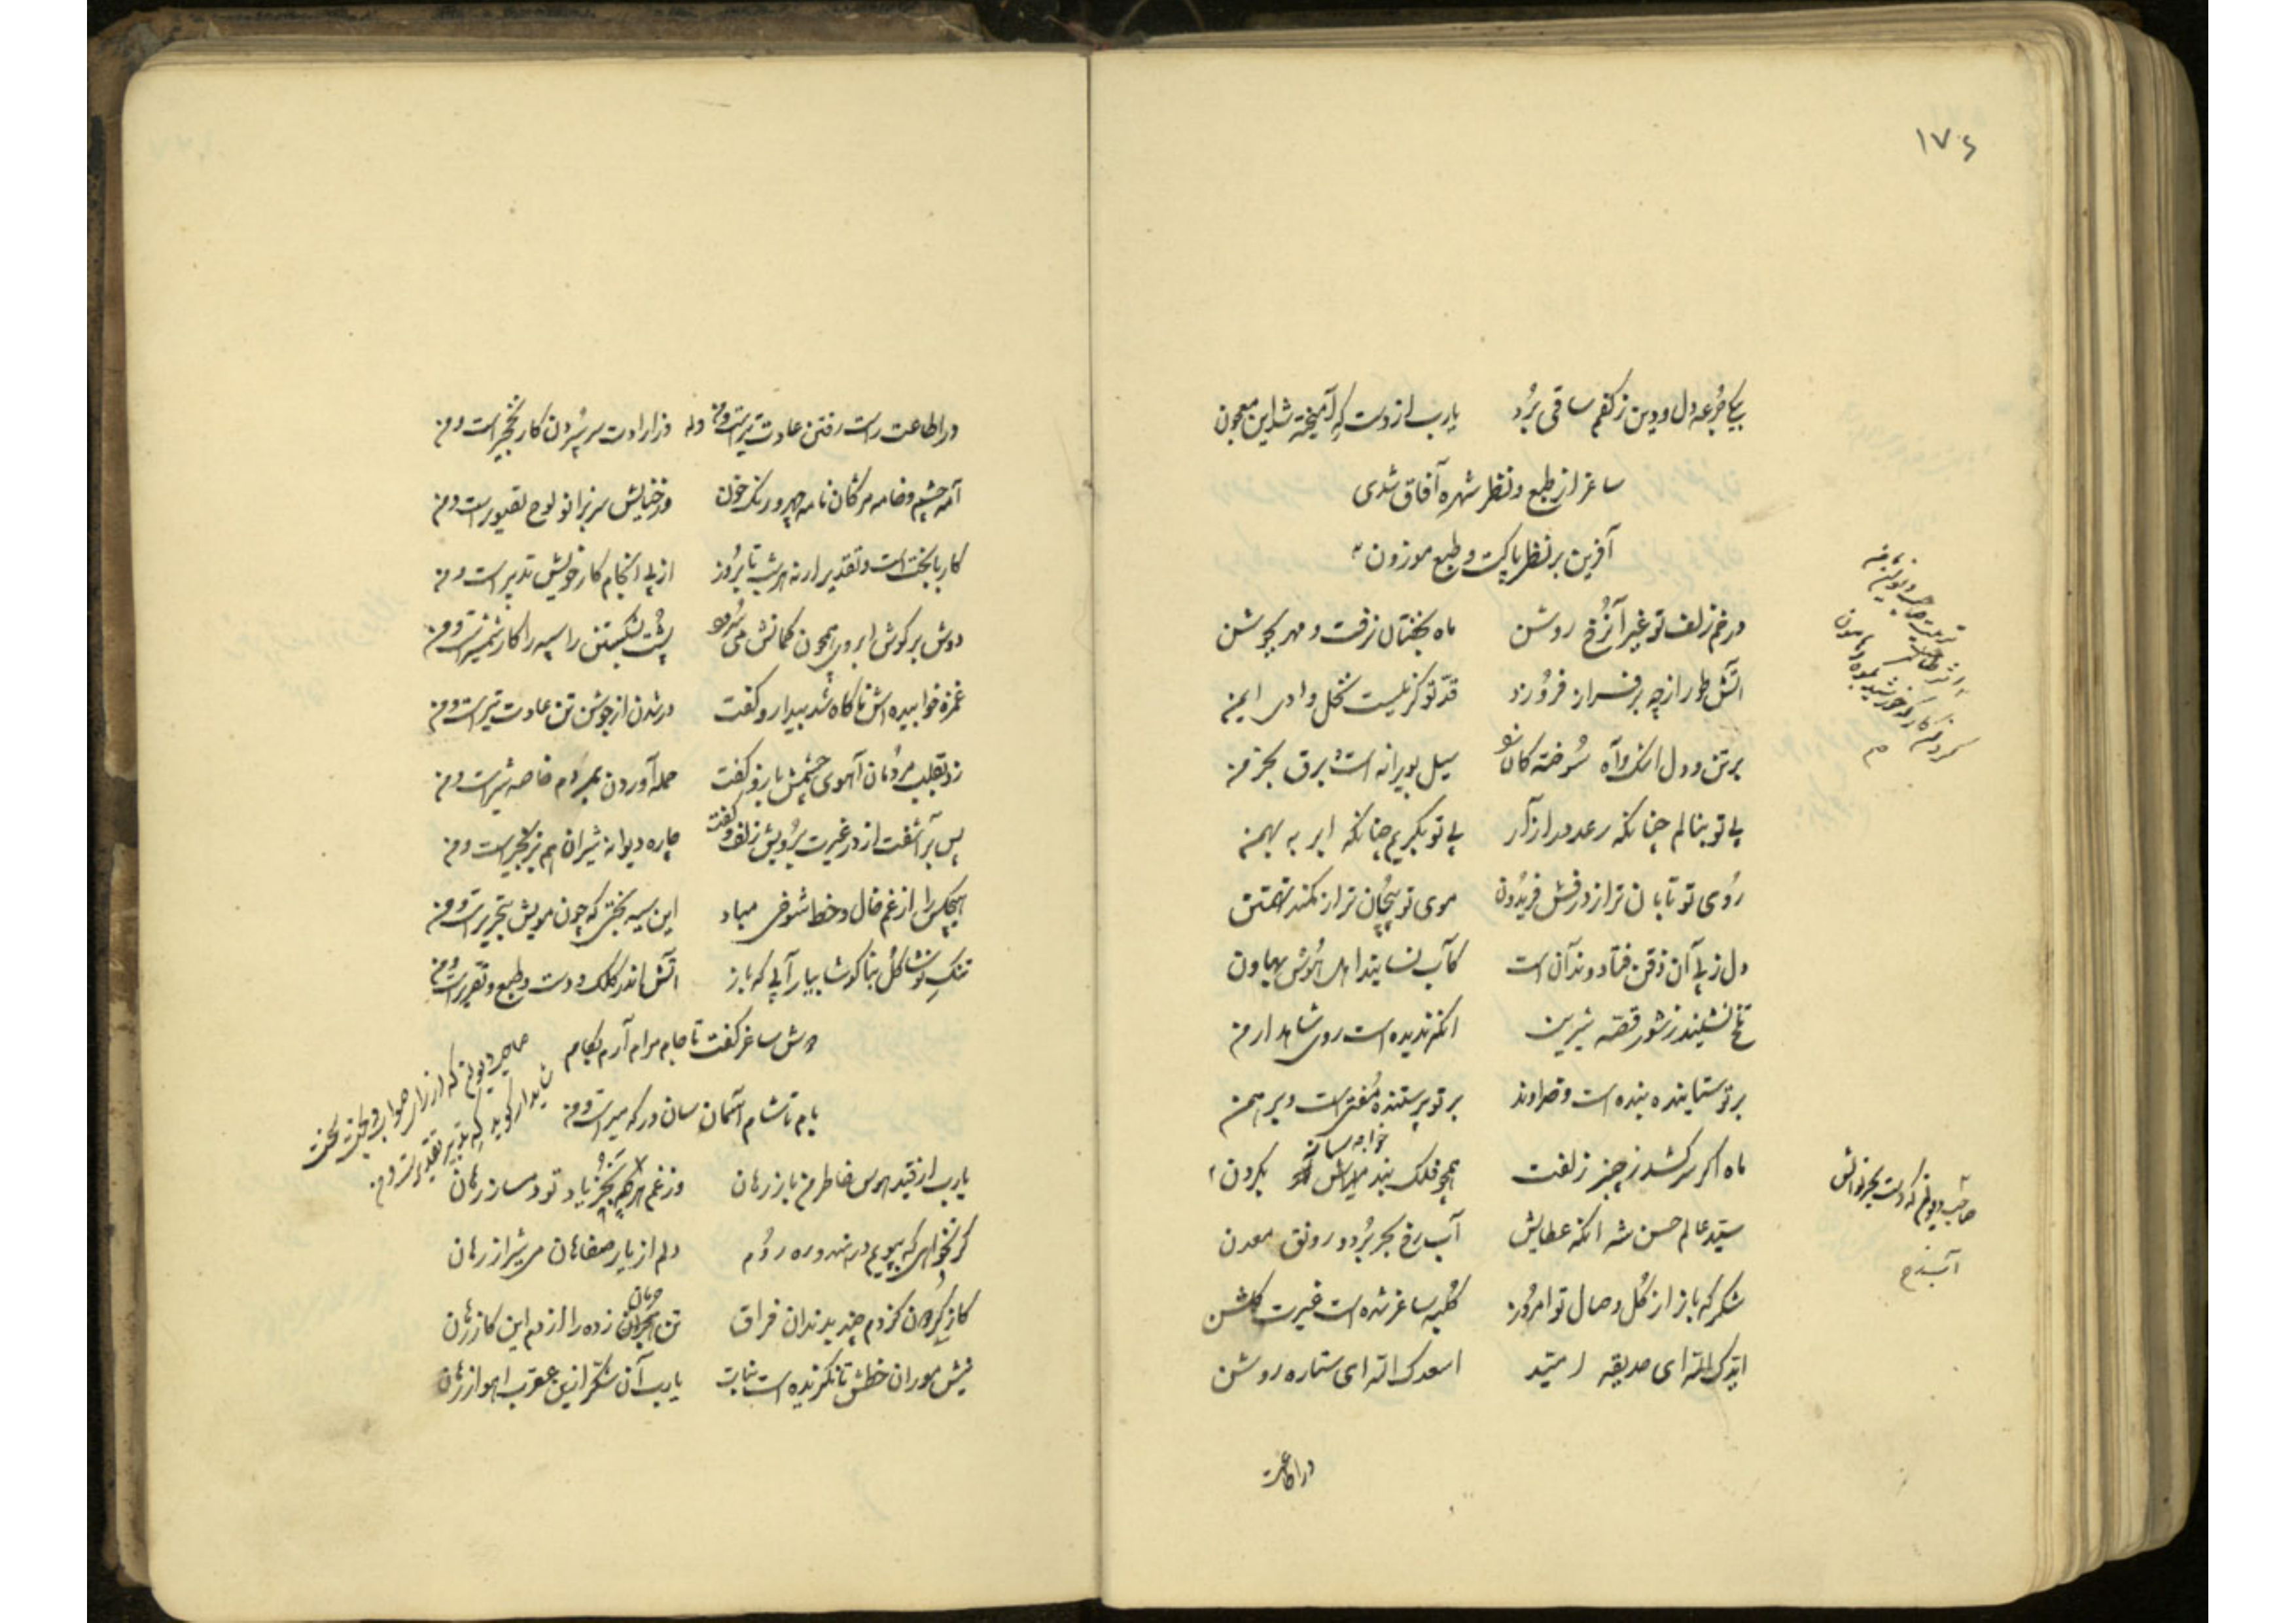 ۱۷۶
بیک جرعه دل و دین ز کفم ساقی برد یارب از دست که آمیخته شد این معجون
ساغر از طبع و نظر شهره آفاق شدی
آفرین بر نظر پاکت و طبع موزون
در خم زلف تو غیر آن رخ روشن ماه بکفتان نرفت و مهر بجوشن
آتش طور از چه بر فراز فروزد قد تو گر نیست نخل وادی ایمن
بر تن و دل اشک و آه سوخته کان تو سیل بویرانه است برق بخرمن
بی تو بنالم چنانکه رعد در آزار بی تو بگریم چنانکه ابر به بهمن
روی تو تابان تر از درفش فریدون موی تو پیچان تر از کمند تهمتن
دل ز پی آن ذقن فتاد و ندانست کآب نسایند اهل هوش بهاون
تلخ نشیند ز شور قصه شیرین آنکه ندیده است روی شاهد ارمن
بر تو ستاینده بنده است و خداوند بر تو پرستنده مفتی است و برهمن
ماه اگر سر کشد ز چنبر زلفت همچو فلک بند خواجه ساز بگردن
سید عالم حسن شه آنکه عطایش آب رخ بحر برد و رونق معدن
شکر که باز از گل وصال تو امروز کلبه ساغر شده است غیرت گلشن
ایدک الله ای حدیقه امید اسعدک الله ای ستاره روشن
صاحب دیوانم که دست بحر نوالش
آب رخ
در اطاعت
در اطاعت راست رفتن عادت تیر است و من وله در ارادت سر سپردن کار نخجیر است و من
آمه چشم و خامه مژگان نامه چهر و رنگ خون در خیالش سر بزانو لوح تصویر است و من
کار با بخت است و تقدیر ار نه هر شب تا بروز از پی انجام کار خویش تدبیر است و من
دوش بر گوش ابروی همچون کمانش می سرود پشت بشکستن سپه را کار شمشیر است و من
غمزه خوابیده اش ناگاه شد بیدار و گفت در شدن از جوشن تن عادت تیر است و من
زد بقلب مردمان آهوی چشمش باز و گفت حمله آوردن بمردم خاصه شیر است و من
پس برآشفت از در غیرت برویش زلف و گفت چاره دیوانه شیران هم بزنجیر است و من
هیچکس را از غم خال و خط شوخی مباد این سیه بختی که چون مویش بتحریر است و من
تنگ نوشا گل بناگوشا بیار آبی که باز آتش اندر کلک و دست و طبع و تقریر است و من
دوش ساغر گفت تا جام مرام آرم بکام
بام تا شام آسمان سان در گه میر است و من
صاحب دیوانم که از رای صواب و بخت
یارب از قید هوس خاطر من باز رهان وز غم هر چه بجز یاد تو دمساز رهان
گر نخواهی که بپویم در شهر و ره روم دلم از یار صفاهان می شیراز رهان
کاز گردون گزدم چند بدندان فراق تن هجران زده را از دم این کاز رهان
نیش موران خطش تا نگزنده است نبات یارب آن شکر ازین عقرب اهواز رهان